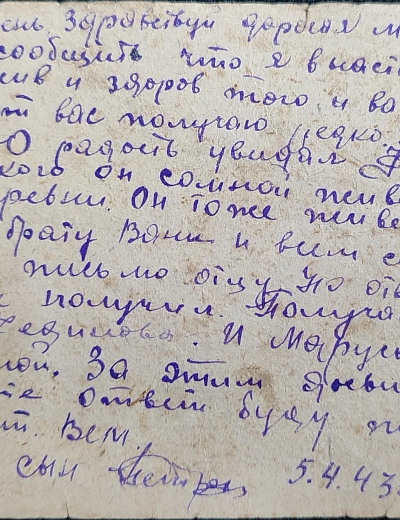 ень Здравствуй дорогая м
сообщить что я в наст
жив и здоров того и ва
от вас получаю редко.
О радость увидал
кого он сомной живе
ревни. Он тоже живе
брату Вани и всем с
письмо отцу. Но отв
получил. Получа
Федикова. И Марусь
ной. За этим досви
те ответ буду
т. Вем.
сын Петр 5.4.43